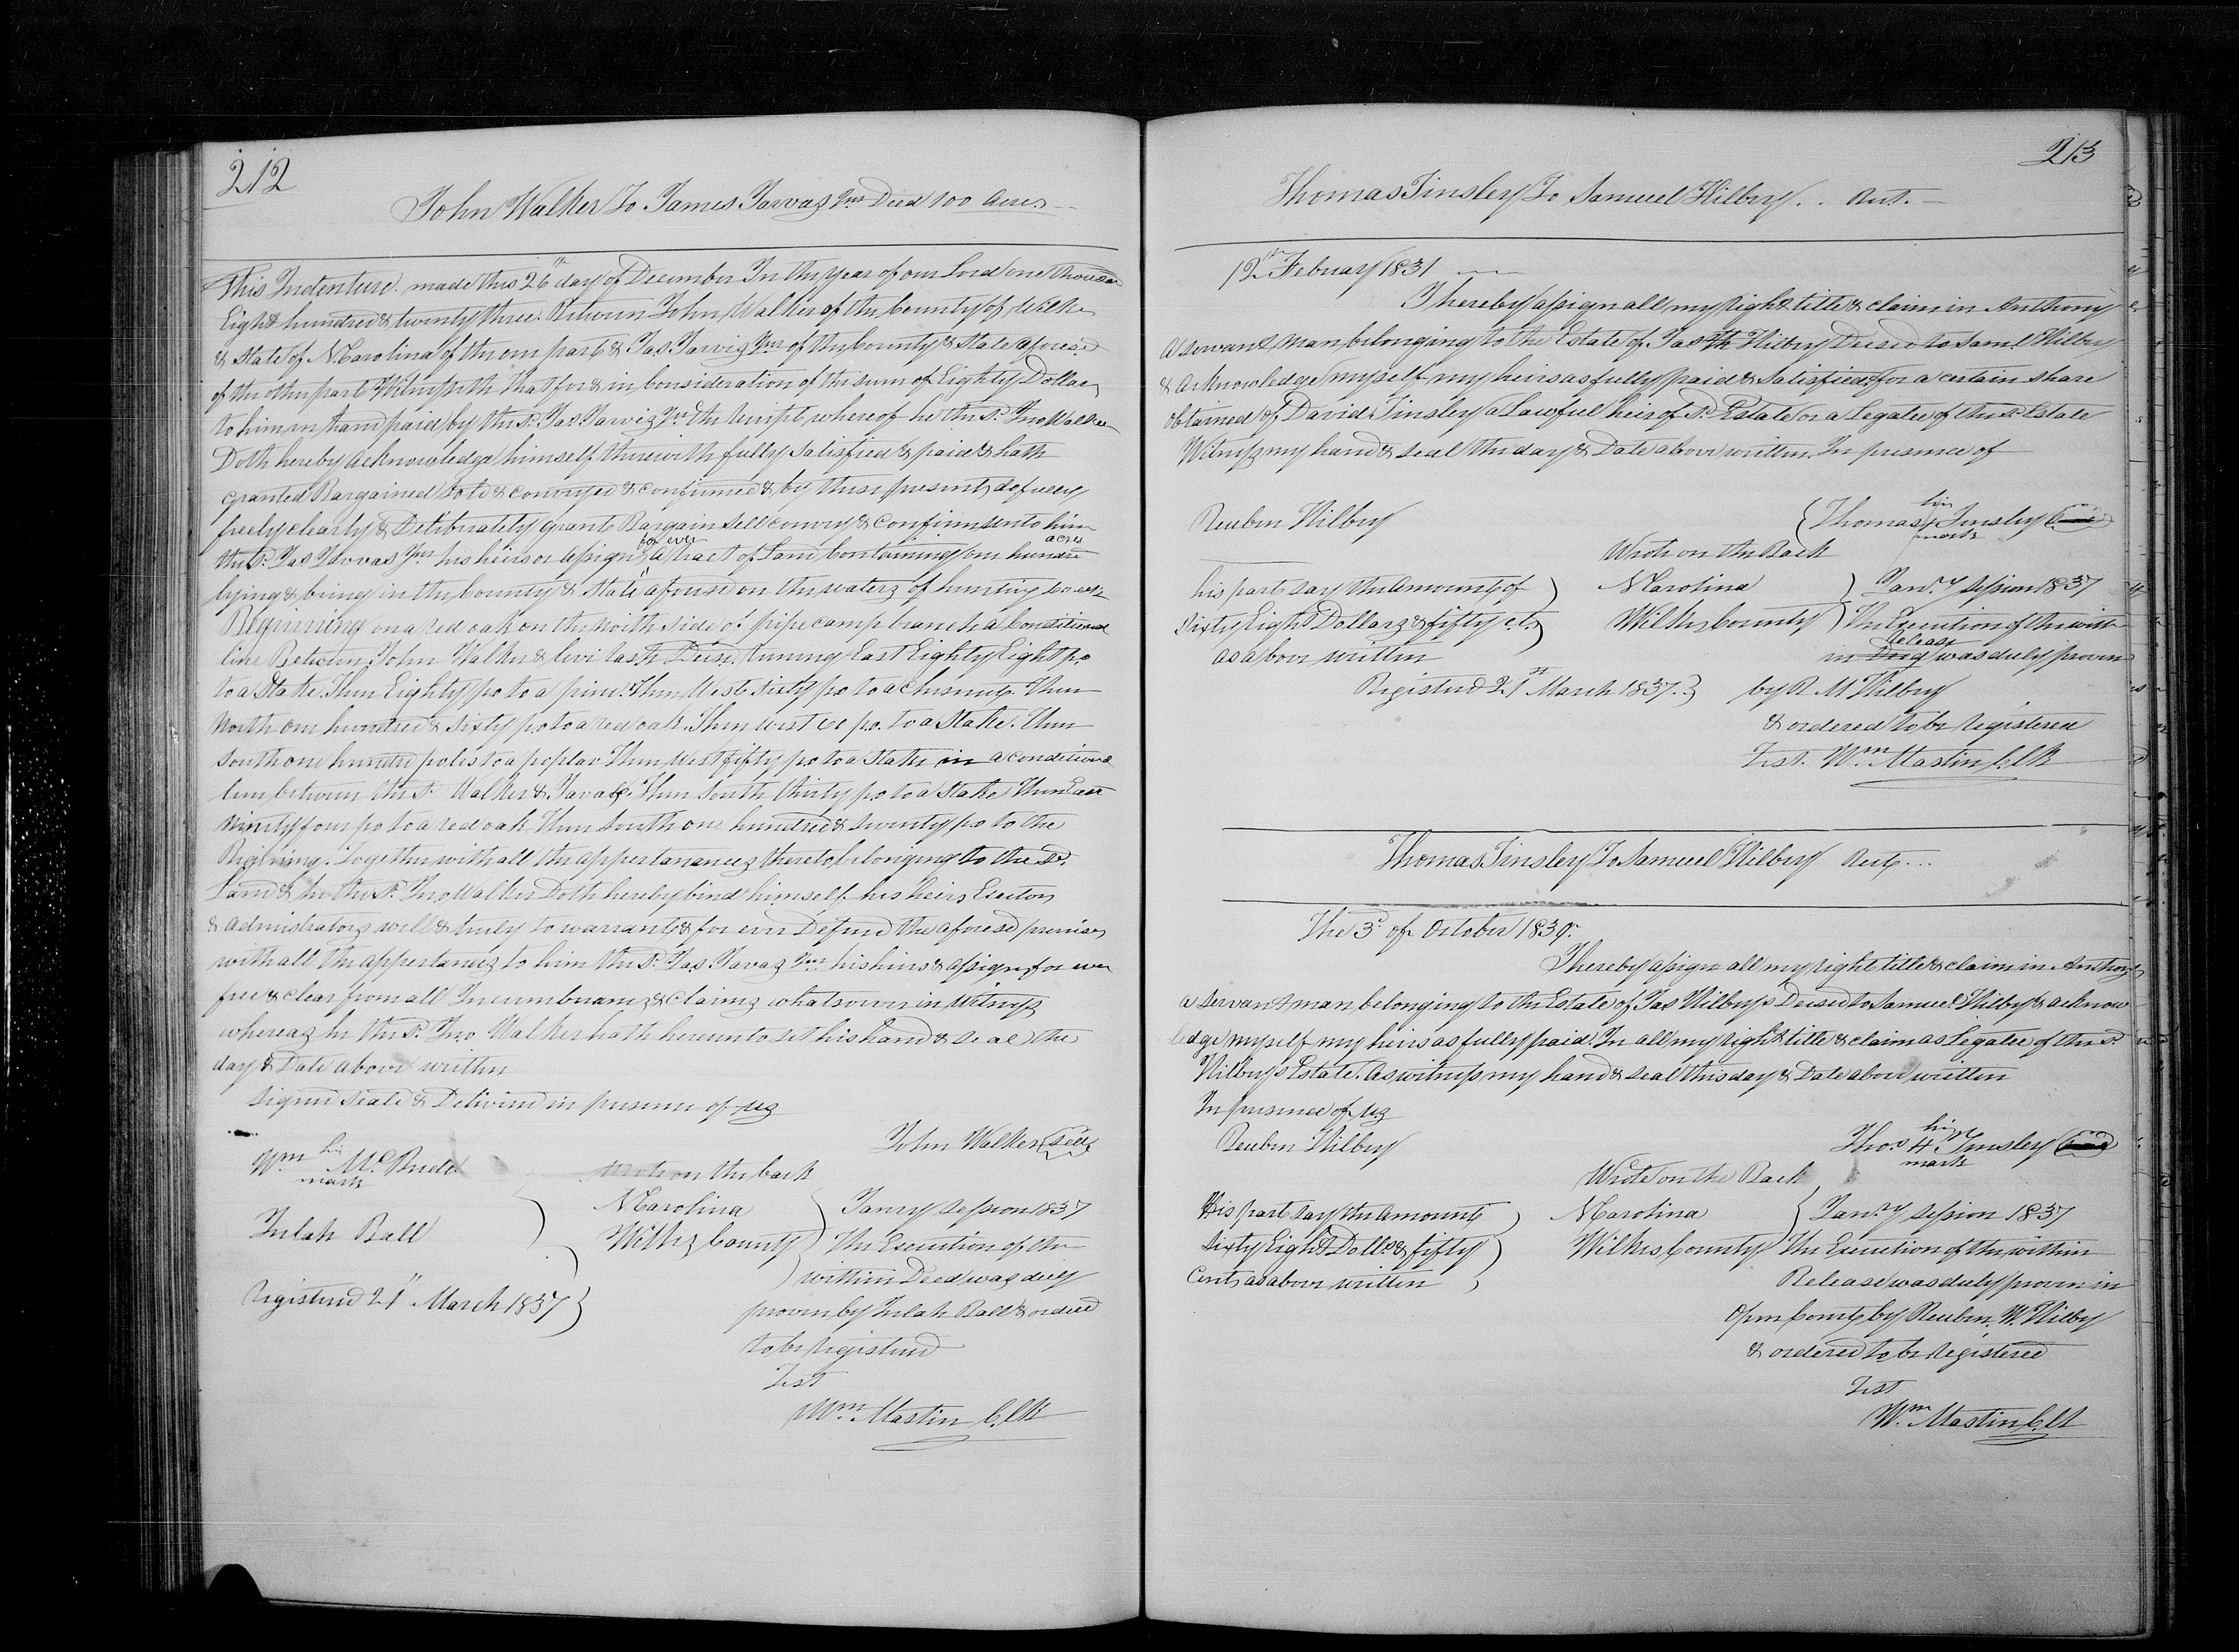 212
John Walker To James Jarvas Jnr Deed 100 Acres
This Indenture made this 26th day of December In the year of our Lord one thousan
Eight hundred & twenty three. Between John Walker of the County of Wilkes
& State of N Carolina of the one part & Jas. Jarvis Jnr of the County & State aforesd
of the other part Witnesseth that for & in Consideration of the sum of Eighty Dollars
to him in hand paid by the sd. Jas Jarvis Jnr the receipt whereof he the sd. Jno Walker
Doth hereby Acknowledge himself therewith fully Satisfied & paid & hath
granted Bargained sold & conveyed & confirmed & by these presents do fully
freely clearly & Deliberately grant Bargain sell convey & confirm unto him
the sd. Jas Jarvas Jnr his heirs or Assigns for ever A tract of Land Containing one hundred acres
lying & being in the County & State aforesd on the waters of hunting Creek
Beginning on a red oak on the North side of pipe camp branch a Conditional
line Between John Walker & Levi Cash Decsd. Runing East Eighty Eight po
to a Stake. Then Eighty po to a pine. Then West sixty po to a Chesnut. Then
North one hundred & sixty po to a red oak. Then west po. to a Stake. Then
South one hundred poles to a poplar Then West fifty po to a Stake in a conditional
line between the sd. Walker & Jarvas. Then South thirty po to a Stake Then East
Ninety four po to a red oak Then South one hundred & twenty po to the
Begining. Together with all the appertanances thereto belonging to the sd.
Land & he the sd. Jno Walker Doth hereby bind himself his heirs Exectors
& Administrators will & truly to warrant & for ever Defend the aforesd premises
with all the appertances to him the sd. Jas Javas Jnr his hirs & assigns for ever
free & clear from all Incumbrances & Claims whatsoever in Witness
whereas he the sd. Jno Walker hath hereunto set his hand & seal the
day & Date above written
Signed Seald & Delivired in presence of us
John Walker (seal)
Wm his mark McBride
Wrote on the back
Julah Ball
N Carolina } Janry Session 1837
Wilkes County } The Execution of the
within Deed was duly
Registered 21st March 1837 }
proven by Julah Ball & orderd
to be registered
Test
Wm Mastin ClK
213
Thomas Tinsley To Samuel Kilbry .. Ant.
12th Febuary 1831
I hereby assign all my right title & claim in Anthony
A servant man belonging to the Estate of Jas Kilbry Decsd to Saml Kilbry
& Acknowledge myself my heirs as fully paid & Satisfied for a certain share
obtained of David Tinsley a Lawful heir of sd. Estate or a Legatee of the sd. Estate
Witness my hand & seal the day & Date above written. In presence of
Reuben Kilbry
{ Thomas his mark Tinsley (seal)
Wrote on the Back
his part say the Amount of } N Carolina } Janry session 1837
Sixty Eight Dollars & fifty cts } Wilkes County } The Execution of the with
as above written
in Deed Release was duly proven
Registerd 21st March 1837. } by R M Kilbry
& ordered to be registered
Test. Wm Mastin ClK
Thomas Tinsley To Samuel Kilbry Ant ...
The 3d of October 1830.
I hereby assign all my right title & claim in Anthony
A servant man belonging to the Estate of Jas Kilbrys Decsed to Samuel Kilby & acknow
ledge myself my heirs as fully paid In all my right title & claim as Legatee of the sd.
Kilbrys Estate. As witness my hand & seal this day & Date above written
In presence of us
Reuben Kilbry
Thos his 4 mark Tinsley (seal)
Wrote on the Back
His part say the Amount } N Carolina } Janry session 1837
Sixty Eight Dolls & fifty } Wilkes County The Execution of the within
Cents as above written }
Release was duly proven in
Open Court by Reuben. W. Kilby
& ordered to be Registered
Test
Wm Mastin Clk